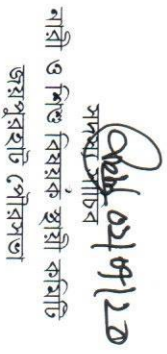 সদস্য সচিব
নারী ও শিশু বিষয়ক স্থায়ী কমিটি
জয়পুরহাট পৌরসভা